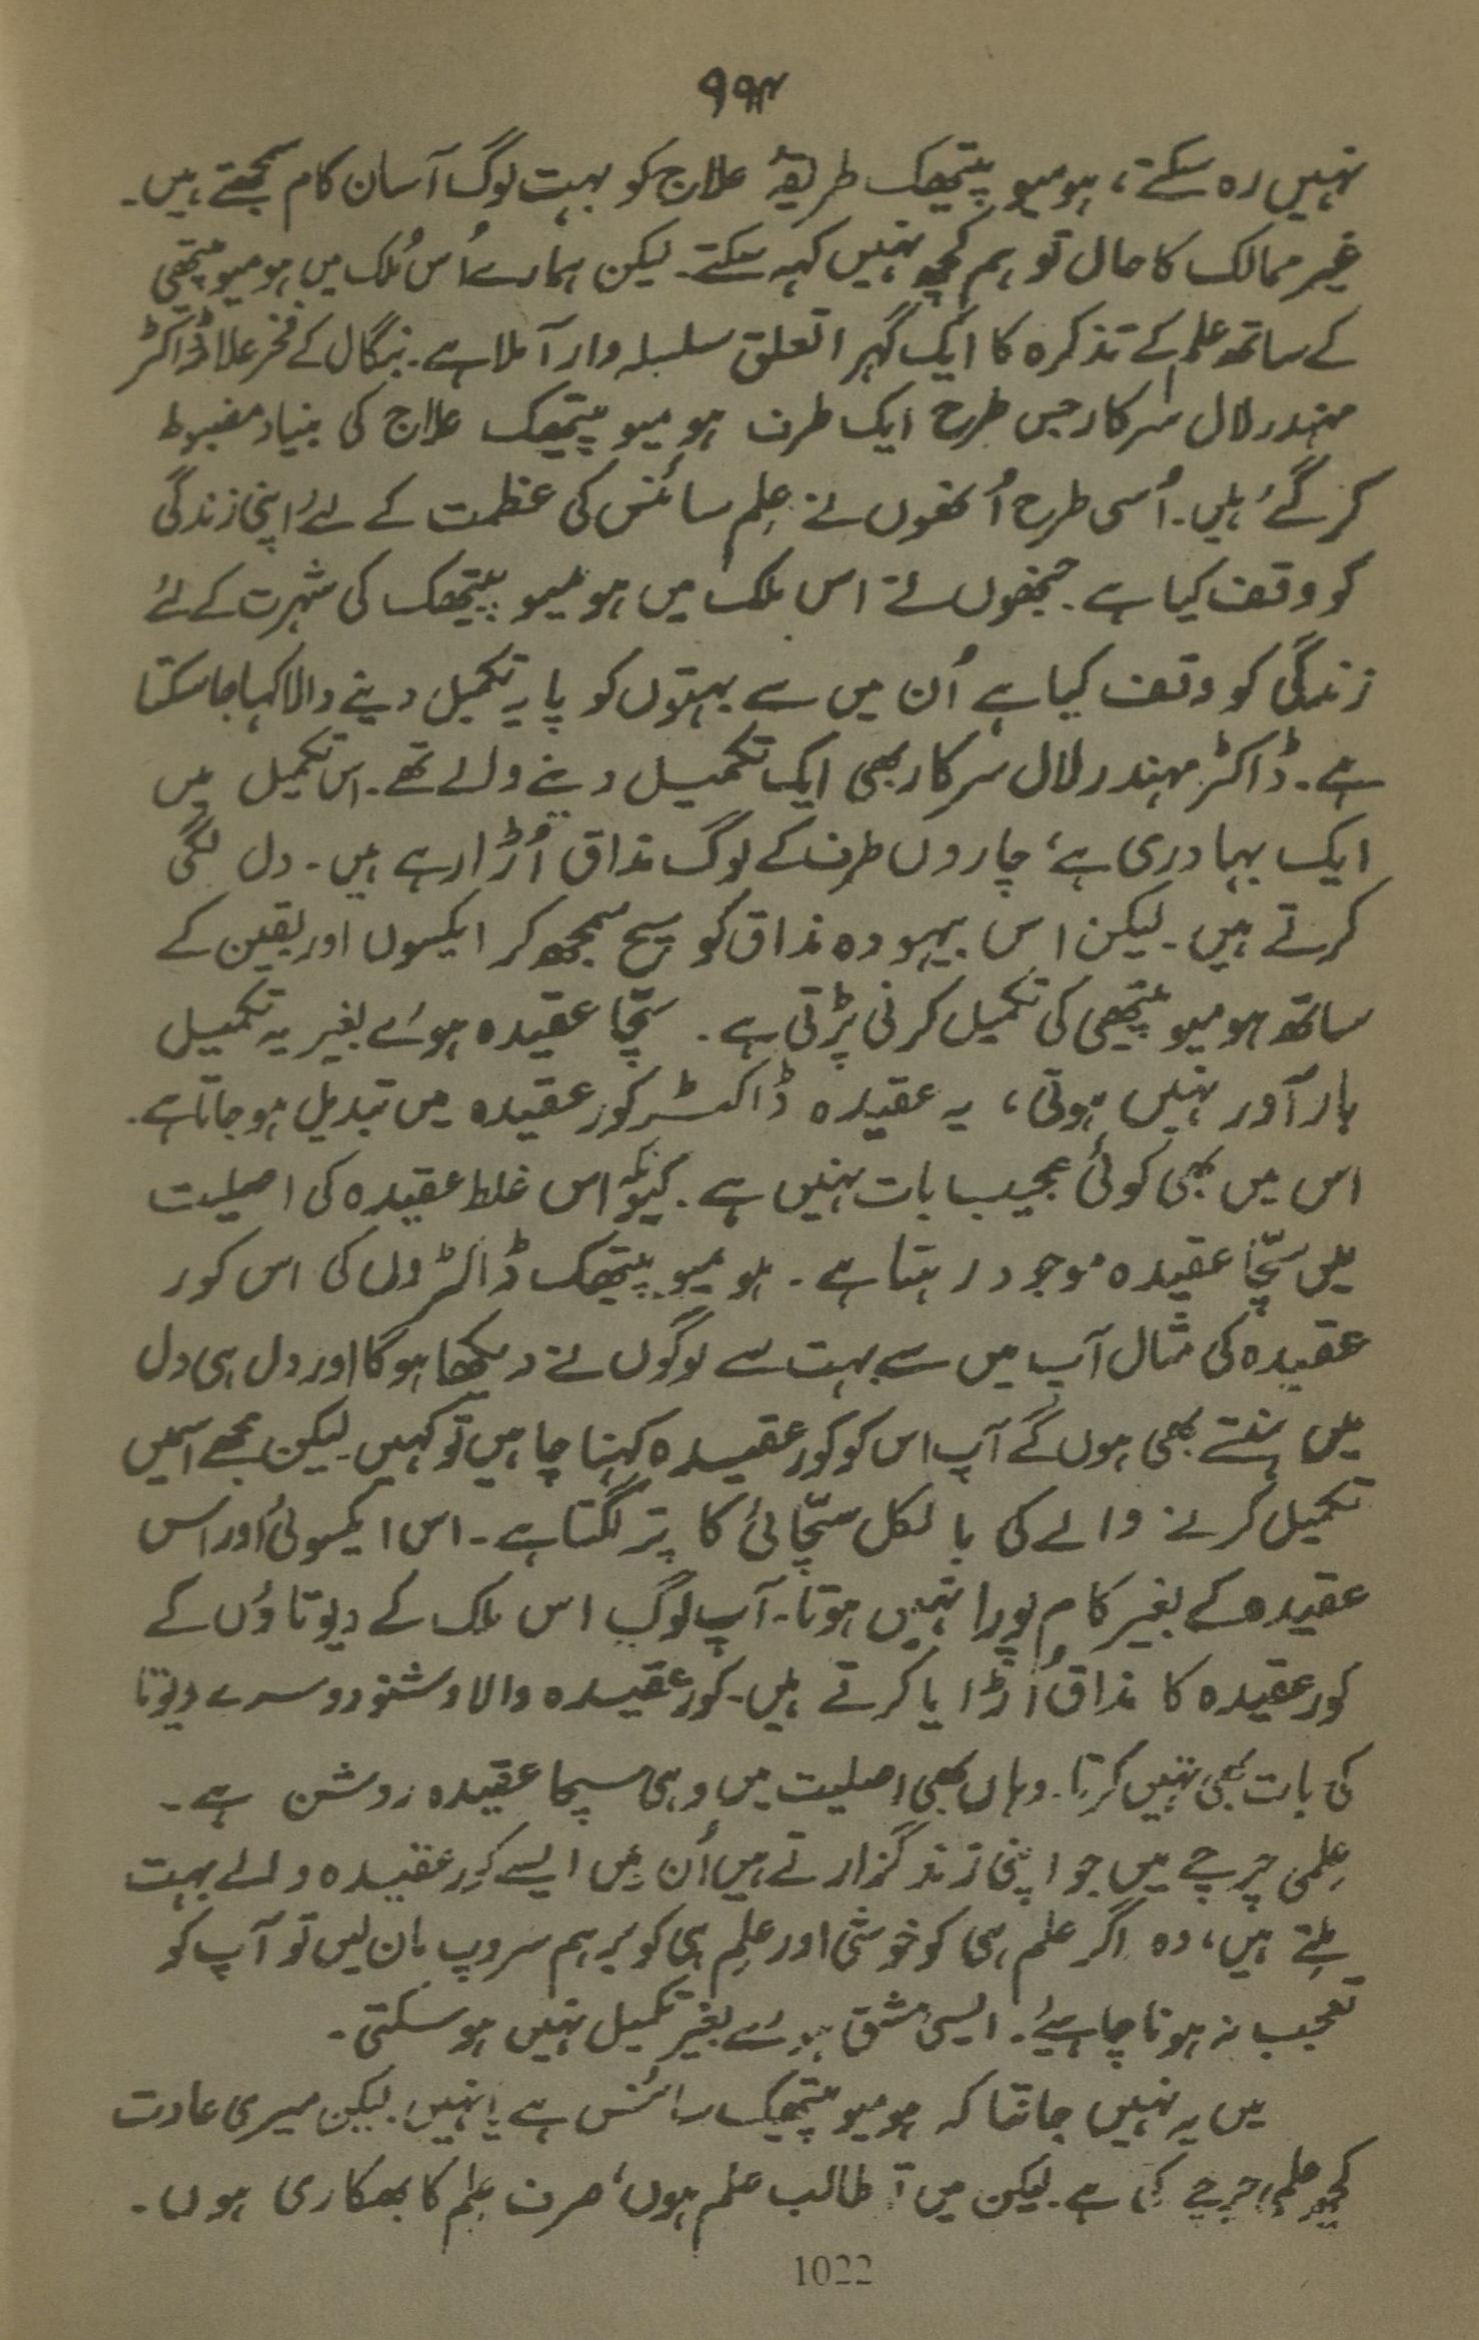 ۹۹۴
نہیں رہ سکتے، ہومیو پیتھک طریقۂ علاج کو بہت لوگ آسان کام سمجھتے ہیں۔
غیر ممالک کا حال تو ہم کچھ نہیں کہہ سکتے۔ لیکن ہمارے اُس مُلک میں ہومیوپیتھی
کے ساتھ علم کے تذکرہ کا ایک گہرا تعلق سلسلہ وار آملا ہے۔ بنگال کے فخر علا ڈاکٹر
مہندر لال سرکار جس طرح ایک طرف ہومیو پیتھک علاج کی بنیاد مضبوط
کر گئے ہیں۔ اُسی طرح اُنھوں نے عِلم سائنس کی عظمت کے لئے اپنی زندگی
کو وقف کیا ہے۔ جنھوں نے اس ملک میں ہومیو پیتھک کی شہرت کے لئے
زندگی کو وقف کیا ہے اُن میں سے بہتوں کو پایہ تکمیل دینے والا کہا جاسکتا
ہے۔ ڈاکٹر مہندر لال سرکار بھی ایک تکمیل دینے والے تھے۔ اس تکمیل میں
ایک بہادری ہے، چاروں طرف کے لوگ مذاق اُڑا رہے ہیں۔ دل لگی
کرتے ہیں۔ لیکن اس بیہودہ مذاق کو ہیچ سمجھ کر ایکسوں اور یقین کے
ساتھ ہومیوپیتھی کی تکمیل کرنی پڑتی ہے۔ سچّا عقیدہ ہوئے بغیر یہ تکمیل
بارآور نہیں ہوتی، یہ عقیدہ ڈاکٹر کور عقیدہ میں تبدیل ہو جاتا ہے۔
اس میں بھی کوئی عجیب بات نہیں ہے۔ کیونکہ اس غلط عقیدہ کی اصلیت
میں سچّا عقیدہ موجود رہتا ہے۔ ہومیو پیتھک ڈاکٹروں کی اس کور
عقیدہ کی مثال آپ میں سے بہت سے لوگوں نے دیکھا ہوگا اور دل ہی دل
میں ہنستے بھی ہوں گے آپ اس کو کور عقیدہ کہنا چاہیں تو کہیں۔ لیکن مجھے اسمیں
تکمیل کرنے والے کی بالکل سچّائی کا پتہ لگتا ہے۔ اس ایکسوئی اور اس
عقیدہ کے بغیر کام پورا نہیں ہوتا۔ آپ لوگ اس ملک کے دیوتاؤں کے
کور عقیدہ کا مذاق اُڑایا کرتے ہیں۔ کور عقیدہ والا وشنو دوسرے دیوتا
کی بات بھی نہیں کرتا۔ وہاں بھی اصلیت میں وہی سچا عقیدہ روشن ہے۔
عِلمی چرچے میں جو اپنی زند گزارتے ہیں اُن میں ایسے کور عقیدہ والے بہت
ملتے ہیں، وہ اگر علم ہی کو خوشی اور علم ہی کو برہم سروپ مان لیں تو آپ کو
تعجب نہ ہونا چاہیئے۔ ایسی مشق ہوئے بغیر تکمیل نہیں ہوسکتی۔
میں یہ نہیں جانتا کہ ہومیو پیتھیک سائنس ہے یا نہیں۔ لیکن میری عادت
کچھ علمی چرچے کی ہے۔ لیکن میں تو طالب علم ہوں، صرف علم کا بھکاری ہوں۔
1022